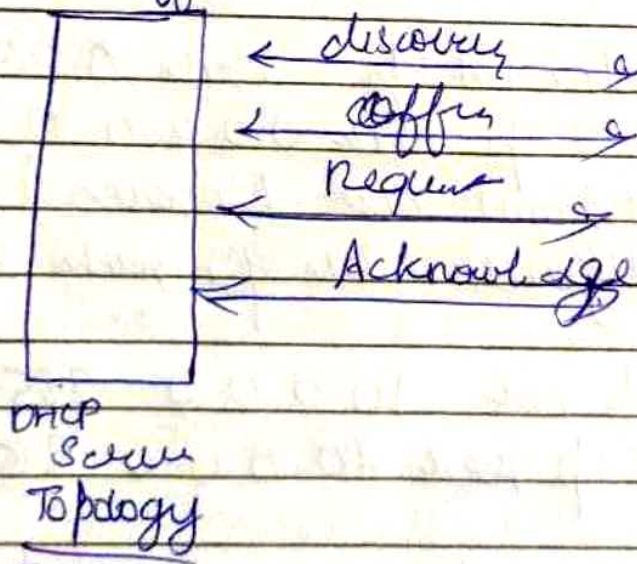 discovery
offer
Request
Acknowledge
DHCP
Server
Topology